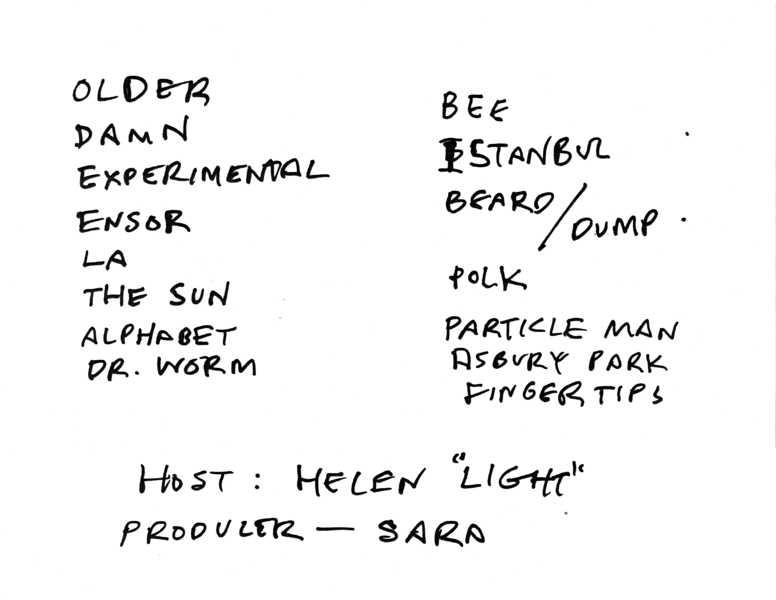 OLDER
DAMN
EXPERIMENTAL
ENSOR
LA
THE SUN
ALPHABET
DR. WORM
BEE
ISTANBUL
BEARD/DUMP
POLK
PARTICLE MAN
ASBURY PARK
FINGERTIPS
HOST: HELEN "LIGHT"
PRODUCER — SARA